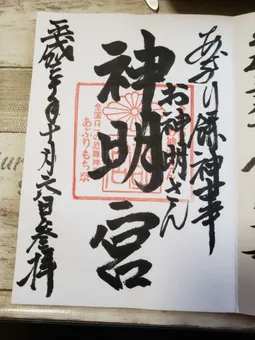 あぶり餅神事
お神明さん
神明宮
あぶりもち祭
平成三十年十月六日参拝